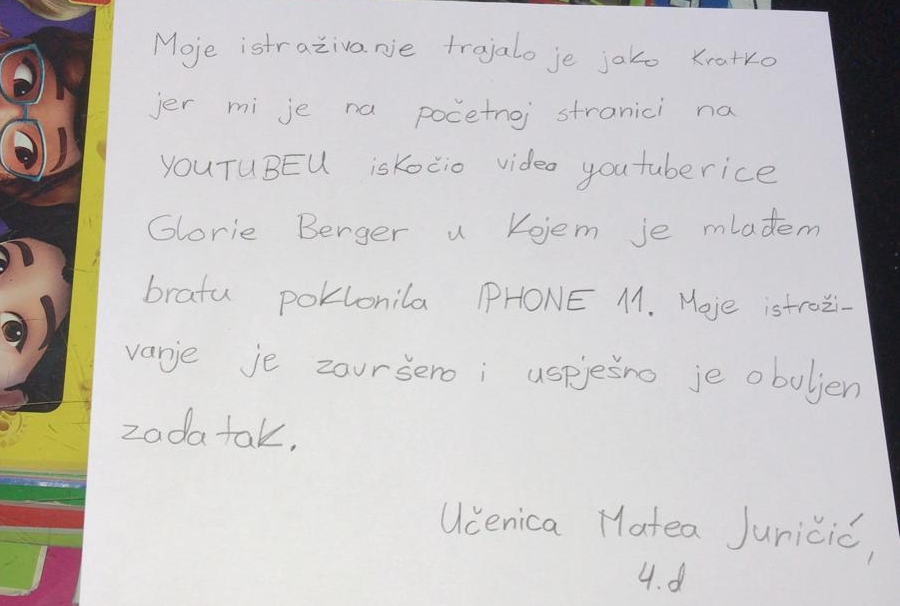 Moje istraživanje trajalo je jako kratko
jer mi je na početnoj stranici na
YOUTUBEU iskočio video youtuberice
Glorie Berger u kojem je mlađem
bratu poklonila IPHONE 11. Moje istraži-
vanje je završeno i uspješno je obuljen
zadatak.
Učenica Matea Juričić,
4.d